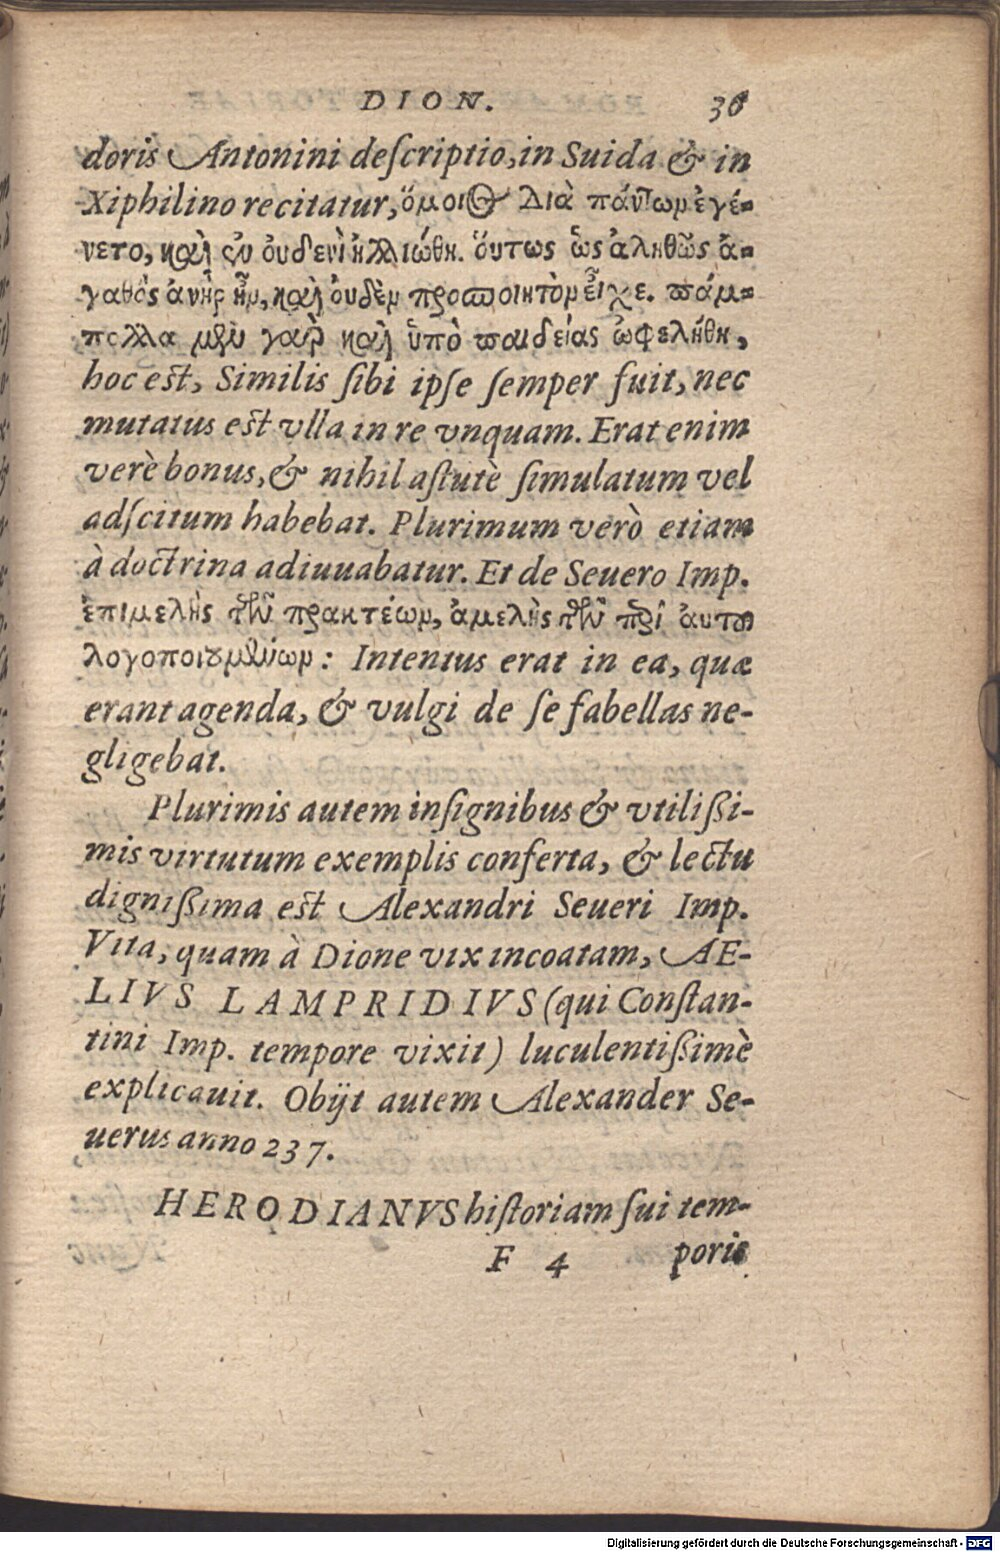 DION. 36
doris Antonini deſcriptio, in Suida & in
Xiphilino recitatur, ὅμοιος διὰ πάντων ἐγέ-
νετο, καὶ ἐν οὐδενὶ ἠλλοιώθη. οὕτως ὡς ἀληθῶς ἀ-
γαθὸς ἀνὴρ ἦν, καὶ οὐδὲν προσποιητὸν εἶχε. πάμ-
πολλα μὲν γὰρ καὶ ὑπὸ παιδείας ὠφελήθη,
hoc eſt, Similis ſibi ipſe ſemper fuit, nec
mutatus eſt vlla in re vnquam. Erat enim
verè bonus, & nihil aſtutè ſimulatum vel
adſcitum habebat. Plurimum verò etiam
à doctrina adiuuabatur. Et de Seuero Imp.
ἐπιμελὴς τῶν πρακτέων, ἀμελὴς τῶν περὶ αὐτοῦ
λογοποιουμένων: Intentus erat in ea, quæ
erant agenda, & vulgi de ſe fabellas ne-
gligebat.
Plurimis autem inſignibus & vtilißi-
mis virtutum exemplis conferta, & lectu
dignißima eſt Alexandri Seueri Imp.
Vita, quam à Dione vix incoatam, AE-
LIVS LAMPRIDIVS (qui Conſtan-
tini Imp. tempore vixit) luculentißimè
explicauit. Obijt autem Alexander Se-
uerus anno 237.
HERODIANVS hiſtoriam ſui tem-
F 4 poris
Digitalisierung gefördert durch die Deutsche Forschungsgemeinschaft - DFG